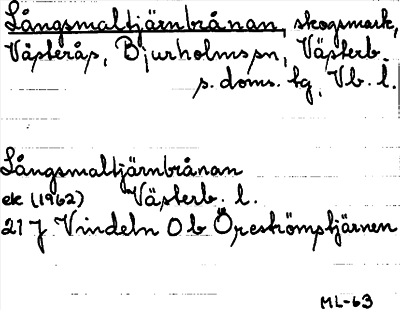 Långsmaltjärnbrånan, skogsmark,
Västerås, Bjurholms sn, Västerb.
s. doms. tg, Vb. l.
Långsmaltjärnbrånan
ek (1962) Västerb. l.
21 J Vindeln 0 b Öreströmstjärnen
ML-63